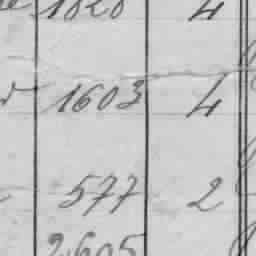 1828 4
1603 4
577 2
2605